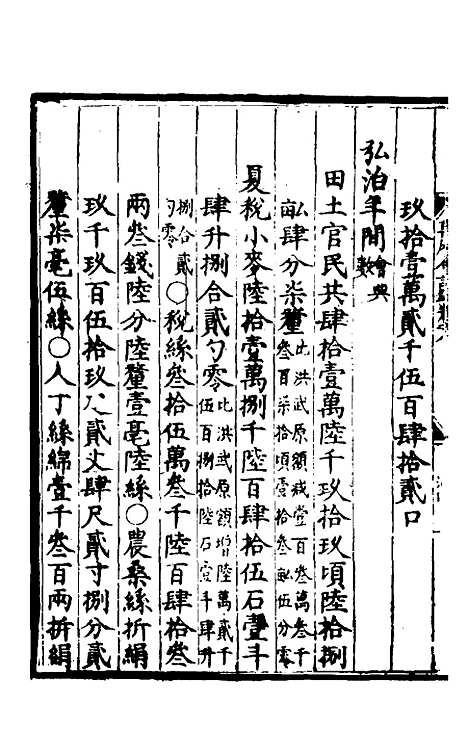 玖拾壹萬貳千伍百肆拾貳口
弘治年間會典數
田土官民共肆拾壹萬陸千玖拾玖頃陸拾捌
畝肆分柒釐比洪武原額減壹百叁萬叁千叁百柒拾頃壹拾叁畝伍分零
夏稅小麥陸拾壹萬捌千陸百肆拾伍石壹斗
肆升捌合貳勺零比洪武原額增陸萬貳千伍百捌拾陸石壹斗肆升
捌合貳勺零〇稅絲叁拾伍萬叁千陸百肆拾叁
兩叁錢陸分陸釐壹毫陸絲〇農桑絲折絹
玖千玖百伍拾玖疋貳丈肆尺貳寸捌分貳
釐柒毫伍絲〇人丁絲綿壹千叁百兩折絹